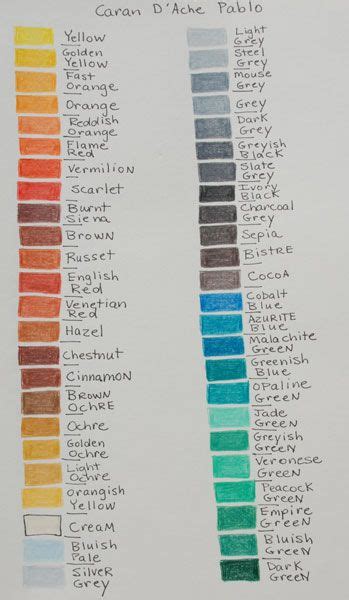 Caran D'Ache Pablo
Yellow
Golden
Yellow
Fast
Orange
Orange
Reddish
Orange
Flame
Red
Vermilion
Scarlet
Burnt
Siena
Brown
Russet
English
Red
Venetian
Red
Hazel
Chestnut
Cinnamon
Brown
Ochre
Ochre
Golden
Ochre
Light
Ochre
Orangish
Yellow
Cream
Bluish
Pale
Silver
Grey
Light
Grey
Steel
Grey
Mouse
Grey
Grey
Dark
Grey
Greyish
Black
Slate
Grey
Ivory
Black
Charcoal
Grey
Sepia
Bistre
Cocoa
Cobalt
Blue
Azurite
Blue
Malachite
Green
Greenish
Blue
Opaline
Green
Jade
Green
Greyish
Green
Veronese
Green
Peacock
Green
Empire
Green
Bluish
Green
Dark
Green